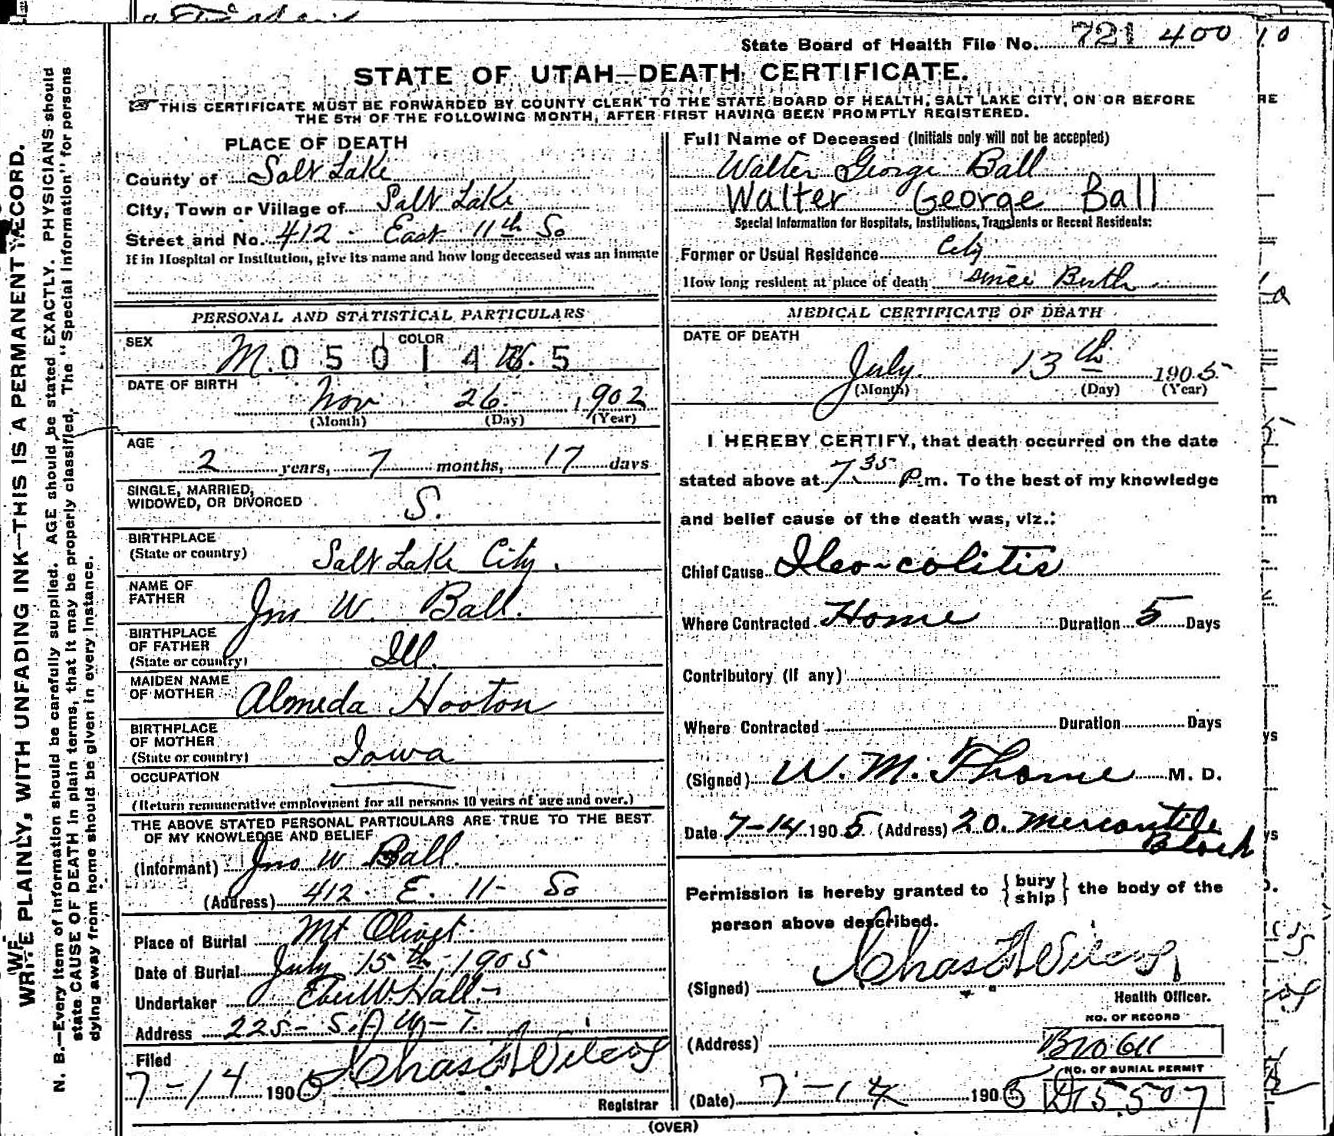 State Board of Health File No. 721 400
STATE OF UTAH—DEATH CERTIFICATE.
THIS CERTIFICATE MUST BE FORWARDED BY COUNTY CLERK TO THE STATE BOARD OF HEALTH, SALT LAKE CITY, ON OR BEFORE
THE 5TH OF THE FOLLOWING MONTH, AFTER FIRST HAVING BEEN PROMPTLY REGISTERED.
WRITE PLAINLY, WITH UNFADING INK—THIS IS A PERMANENT RECORD.
N. B.—Every item of information should be carefully supplied. AGE should be stated EXACTLY. PHYSICIANS should
state CAUSE OF DEATH in plain terms, that it may be properly classified. The "Special Information" for persons
dying away from home should be given in every instance.
PLACE OF DEATH
County of Salt Lake
City, Town or Village of Salt Lake
Street and No. 412 East 11th So
If in Hospital or Institution, give its name and how long deceased was an inmate
PERSONAL AND STATISTICAL PARTICULARS
SEX M. COLOR
0 5 0 1 4 5
DATE OF BIRTH
Nov 26 1902
(Month) (Day) (Year)
AGE
2 years, 7 months, 17 days
SINGLE, MARRIED,
WIDOWED, OR DIVORCED S.
BIRTHPLACE
(State or country) Salt Lake City.
NAME OF
FATHER Jno W. Ball.
BIRTHPLACE
OF FATHER
(State or country) Ill.
MAIDEN NAME
OF MOTHER Almeda Hooton
BIRTHPLACE
OF MOTHER
(State or country) Iowa
OCCUPATION
(Return remunerative employment for all persons 10 years of age and over.)
THE ABOVE STATED PERSONAL PARTICULARS ARE TRUE TO THE BEST
OF MY KNOWLEDGE AND BELIEF
(Informant) Jno W Ball.
(Address) 412 E. 11 So
Place of Burial Mt Olivet.
Date of Burial July 15th 1905
Undertaker Eber W. Hall
Address 225- S.
Filed
7-14 1905 Chas Wilcox
Registrar
Full Name of Deceased (Initials only will not be accepted)
Walter George Ball
Walter George Ball
Special Information for Hospitals, Institutions, Transients or Recent Residents:
Former or Usual Residence City
How long resident at place of death since Birth
MEDICAL CERTIFICATE OF DEATH
DATE OF DEATH
July 13th 1905
(Month) (Day) (Year)
I HEREBY CERTIFY, that death occurred on the date
stated above at 7 35 P.m. To the best of my knowledge
and belief cause of the death was, viz.:
Chief Cause Ileo-colitis
Where Contracted Home Duration 5 Days
Contributory (if any)
Where Contracted Duration Days
(Signed) W. M. Thorne M. D.
Date 7-14 1905 (Address) 20. Mercantile
Block
Permission is hereby granted to {bury ship} the body of the
person above described.
(Signed) Chas Wilcox
Health Officer.
NO. OF RECORD
(Address) B1066
NO. OF BURIAL PERMIT
(Date) 7-14 1905 D15.507
(OVER)